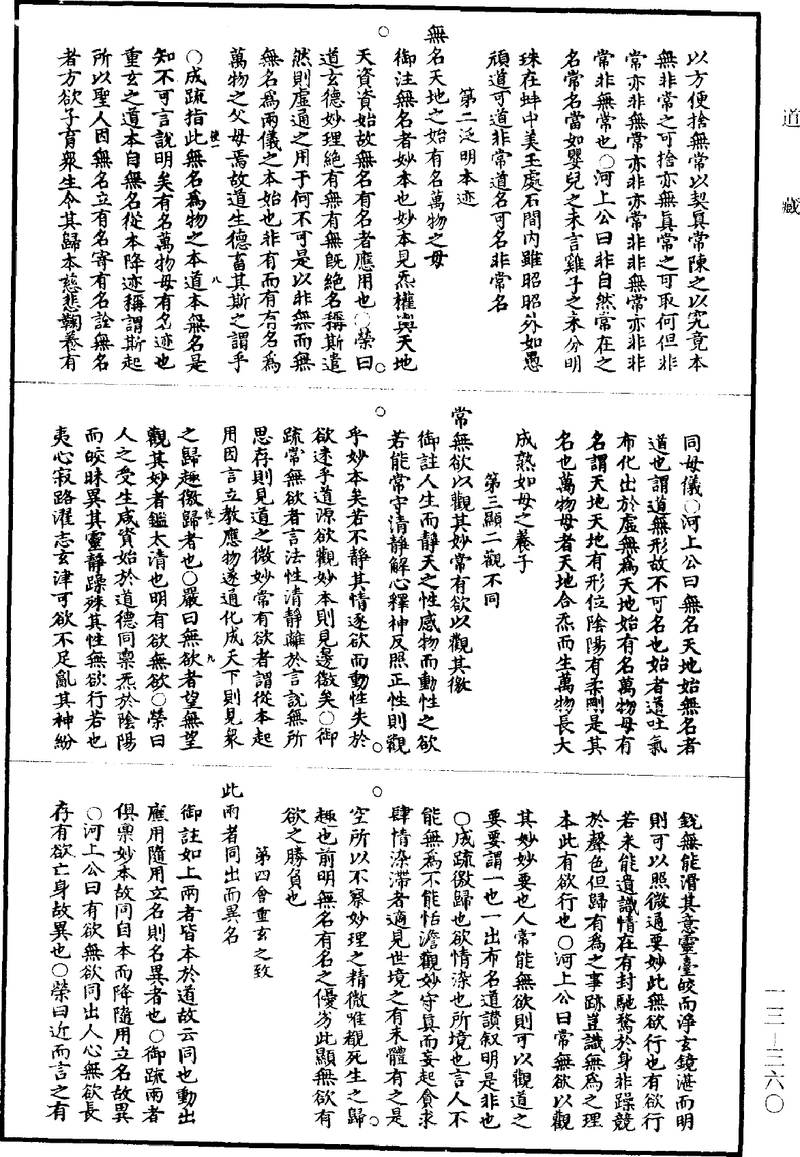 道藏
一三—三六〇
以方便捨無常以契真常陳之以究竟本
無非常之可捨亦無真常之可取何但非
常亦非無常亦非亦常非非無常亦非非
常非無常也○河上公曰非自然常在之
名常名當如嬰兒之未言雞子之未分明
珠在蚌中美玉處石間內雖昭昭外如愚
頑道可道非常道名可名非常名
第二泛明本迹
無名天地之始有名萬物之母
御注無名者妙本也妙本見炁權輿天地
天資資始故無名有名者應用也○榮曰
道玄德妙理絕有無有無既絕名稱斯遣
然則虛通之用于何不可是以非無而無
無名為兩儀之本始也非有而有有名為
萬物之父母焉故道生德畜其斯之謂乎
○成疏指此無名為物之本道本無名是
知不可言說明矣有名萬物母有名迹也
重玄之道本自無名從本降迹稱謂斯起
所以聖人因無名立有名寄有名詮無名
者方欲子育衆生令其歸本慈悲鞠養有
同母儀○河上公曰無名天地始無名者
道也謂道無形故不可名也始者道吐氣
布化出於虛無為天地始有名萬物母有
名謂天地天地有形位陰陽有柔剛是其
名也萬物母者天地合炁而生萬物長大
成熟如母之養子
第三顯二觀不同
常無欲以觀其妙常有欲以觀其徼
御註人生而靜天之性感物而動性之欲
若能常守清靜解心釋神反照正性則觀
乎妙本矣若不靜其情逐欲而動性失於
欲迷乎道源欲觀妙本則見邊徼矣○御
疏常無欲者言法性清靜離於言說無所
思存則見道之微妙常有欲者謂從本起
用因言立教應物遂通化成天下則見衆
之歸趣徼歸者也○嚴曰無欲者望無望
觀其妙者鑑太清也明有欲無欲○榮曰
人之受生咸資始於道德同稟炁於陰陽
而皎昧異其靈靜躁殊其性無欲行若也
夷心寂路濯志玄津可欲不足亂其神紛
銳無能滑其意靈臺皎而淨玄鏡湛而明
則可以照微通要妙此無欲行也有欲行
若未能遺識情在有封馳騖於身非躁競
於聲色但歸有為之事跡豈識無為之理
本此有欲行也○河上公曰常無欲以觀
其妙妙要也人常能無欲則可以觀道之
要要謂一也一出布名道讚叙明是非也
○成疏徼歸也欲情染也所境也言人不
能無為不能恬澹觀妙守真而妄起貪求
肆情染滯者適見世境之有未體有之是
空所以不察妙理之精微唯覩死生之歸
趣也前明無名有名之優劣此顯無欲有
欲之勝負也
第四會重玄之致
此兩者同出而異名
御註如上兩者皆本於道故云同也動出
應用隨用立名則名異者也○御疏兩者
俱稟妙本故同自本而降隨用立名故異
○河上公曰有欲無欲同出人心無欲長
存有欲亡身故異也○榮曰近而言之有